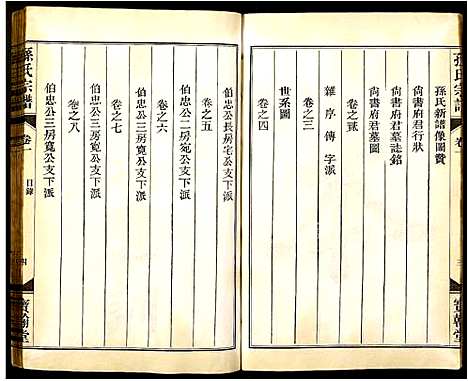 孫氏宗譜
卷一
三
寶翰堂
孫氏新譜像圖贊
尚書府君行狀
尚書府君墓誌銘
尚書府君墓圖
卷之貳
雜序傳字派
卷之三
世系圖
卷之四
伯忠公長房宅公支下派
卷之五
伯忠公二房宛公支下派
卷之六
伯忠公三房寬公支下派
卷之七
伯忠公三房寬公支下派
卷之八
孫氏宗譜
卷一
目錄
四
寶翰堂